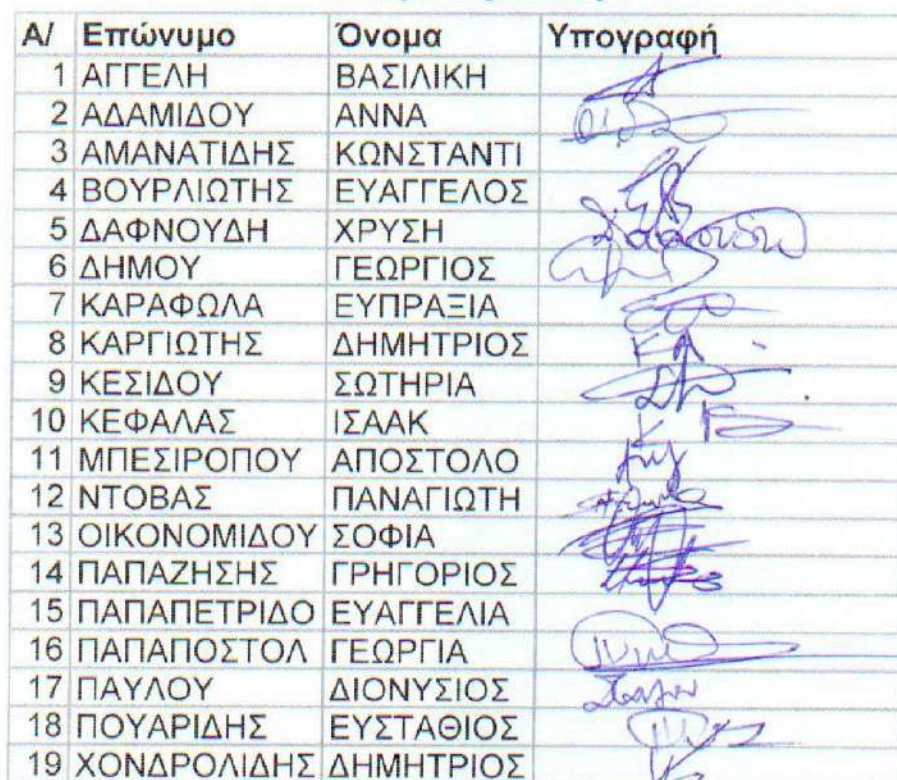 Α/ Επώνυμο Όνομα Υπογραφή
1 ΑΓΓΕΛΗ ΒΑΣΙΛΙΚΗ
2 ΑΔΑΜΙΔΟΥ ΑΝΝΑ
3 ΑΜΑΝΑΤΙΔΗΣ ΚΩΝΣΤΑΝΤΙ
4 ΒΟΥΡΛΙΩΤΗΣ ΕΥΑΓΓΕΛΟΣ
5 ΔΑΦΝΟΥΔΗ ΧΡΥΣΗ
6 ΔΗΜΟΥ ΓΕΩΡΓΙΟΣ
7 ΚΑΡΑΦΩΛΑ ΕΥΠΡΑΞΙΑ
8 ΚΑΡΓΙΩΤΗΣ ΔΗΜΗΤΡΙΟΣ
9 ΚΕΣΙΔΟΥ ΣΩΤΗΡΙΑ
10 ΚΕΦΑΛΑΣ ΙΣΑΑΚ
11 ΜΠΕΣΙΡΟΠΟΥ ΑΠΟΣΤΟΛΟ
12 ΝΤΟΒΑΣ ΠΑΝΑΓΙΩΤΗ
13 ΟΙΚΟΝΟΜΙΔΟΥ ΣΟΦΙΑ
14 ΠΑΠΑΖΗΣΗΣ ΓΡΗΓΟΡΙΟΣ
15 ΠΑΠΑΠΕΤΡΙΔΟ ΕΥΑΓΓΕΛΙΑ
16 ΠΑΠΑΠΟΣΤΟΛ ΓΕΩΡΓΙΑ
17 ΠΑΥΛΟΥ ΔΙΟΝΥΣΙΟΣ
18 ΠΟΥΑΡΙΔΗΣ ΕΥΣΤΑΘΙΟΣ
19 ΧΟΝΔΡΟΛΙΔΗΣ ΔΗΜΗΤΡΙΟΣ